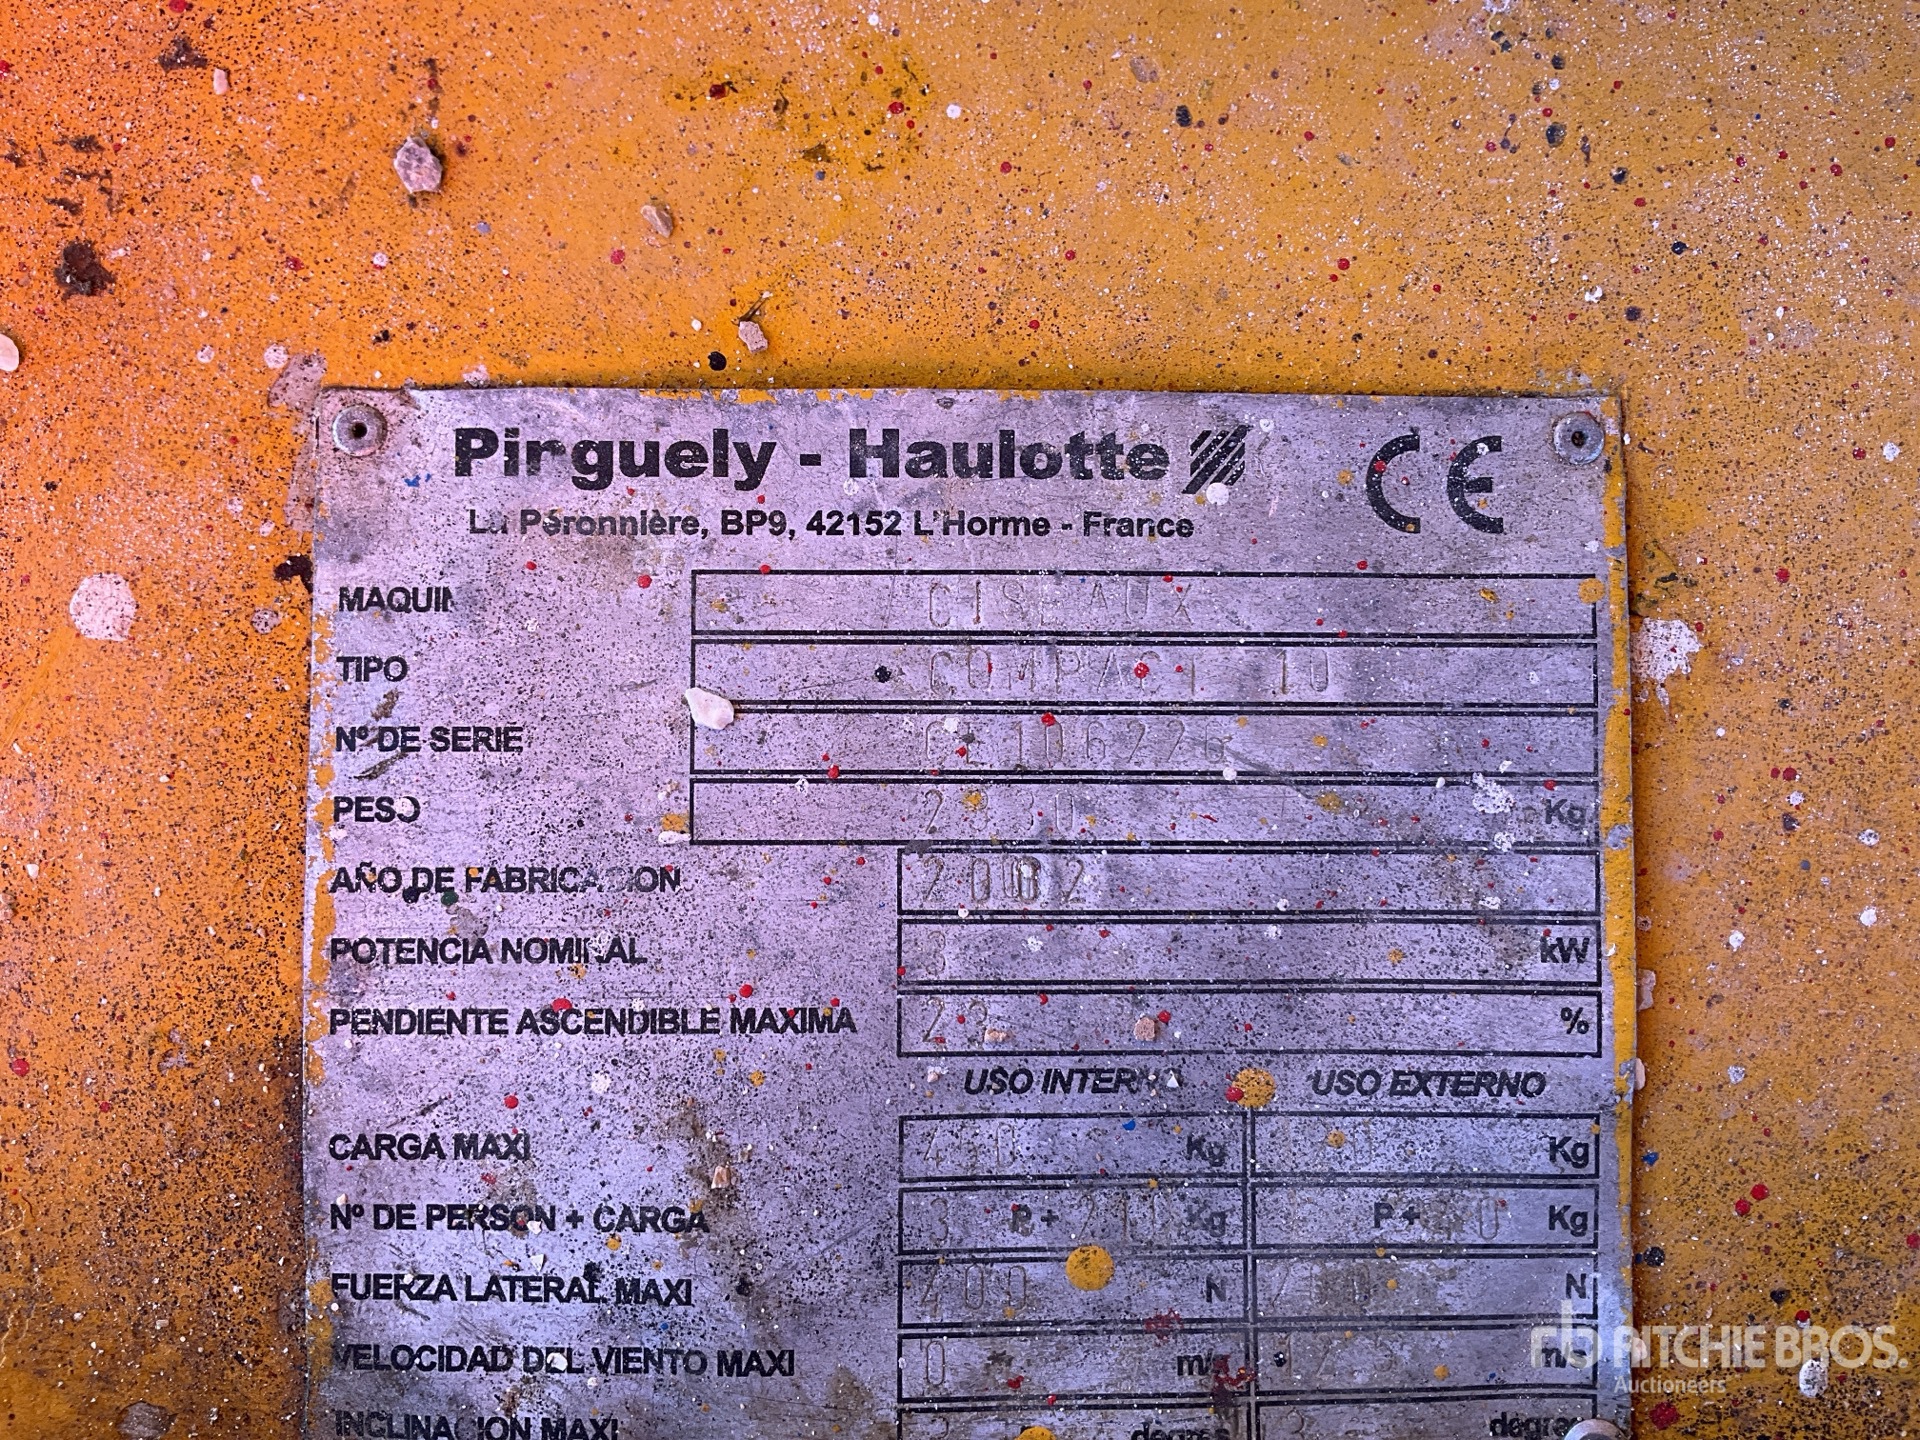 Pirguely - Haulotte CE
La Péronnière, BP9, 42152 L'Horme - France
MAQUIN CISEAUX
TIPO COMPACT 10
Nº DE SERIE CE106226
PESO 2330 Kg
AÑO DE FABRICACION 2002
POTENCIA NOMINAL 3 kW
PENDIENTE ASCENDIBLE MAXIMA 23 %
USO INTERNO USO EXTERNO
CARGA MAXI 450 Kg Kg
Nº DE PERSON + CARGA 3 P + 210 Kg P + Kg
FUERZA LATERAL MAXI 400 N N
VELOCIDAD DEL VIENTO MAXI 0 m/s 12 m/s
INCLINACION MAXI degres degres
RITCHIE BROS.
Auctioneers